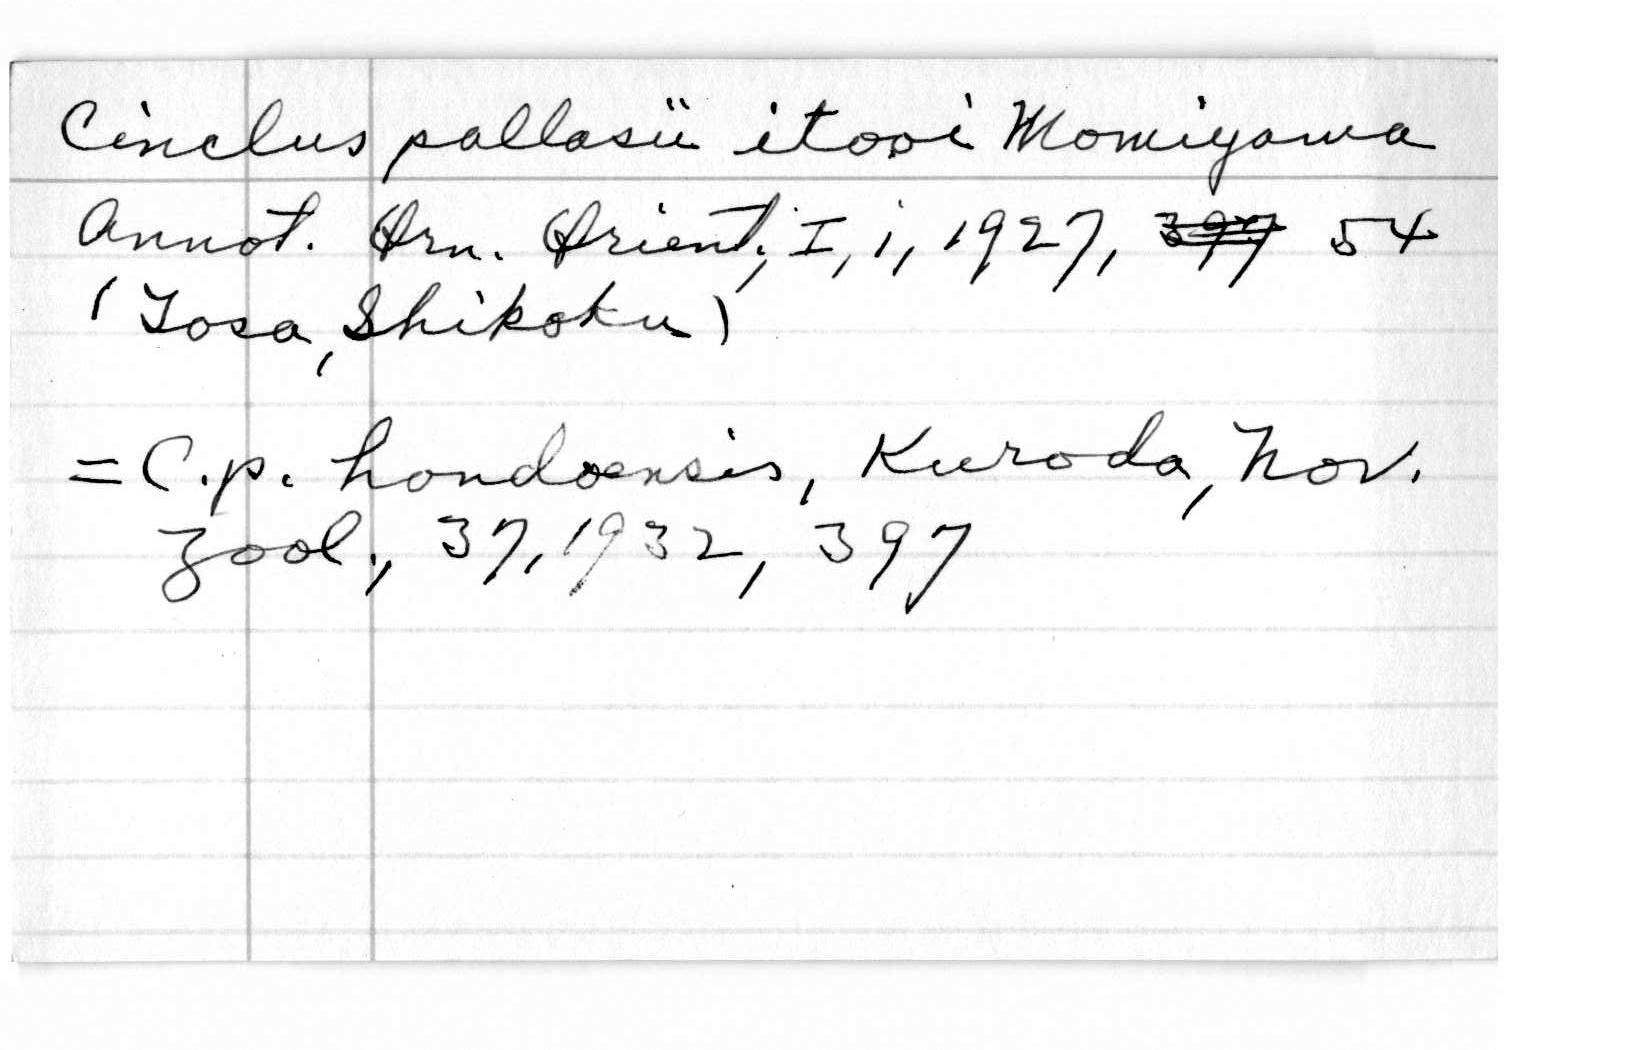 Cinclus pallasii itooi Momiyama
Annot. Orn. Orient., I, i, 1927, 397 54
(Tosa, Shikoku)
= C.p. hondoensis, Kuroda, Nov.
Zool., 37, 1932, 397